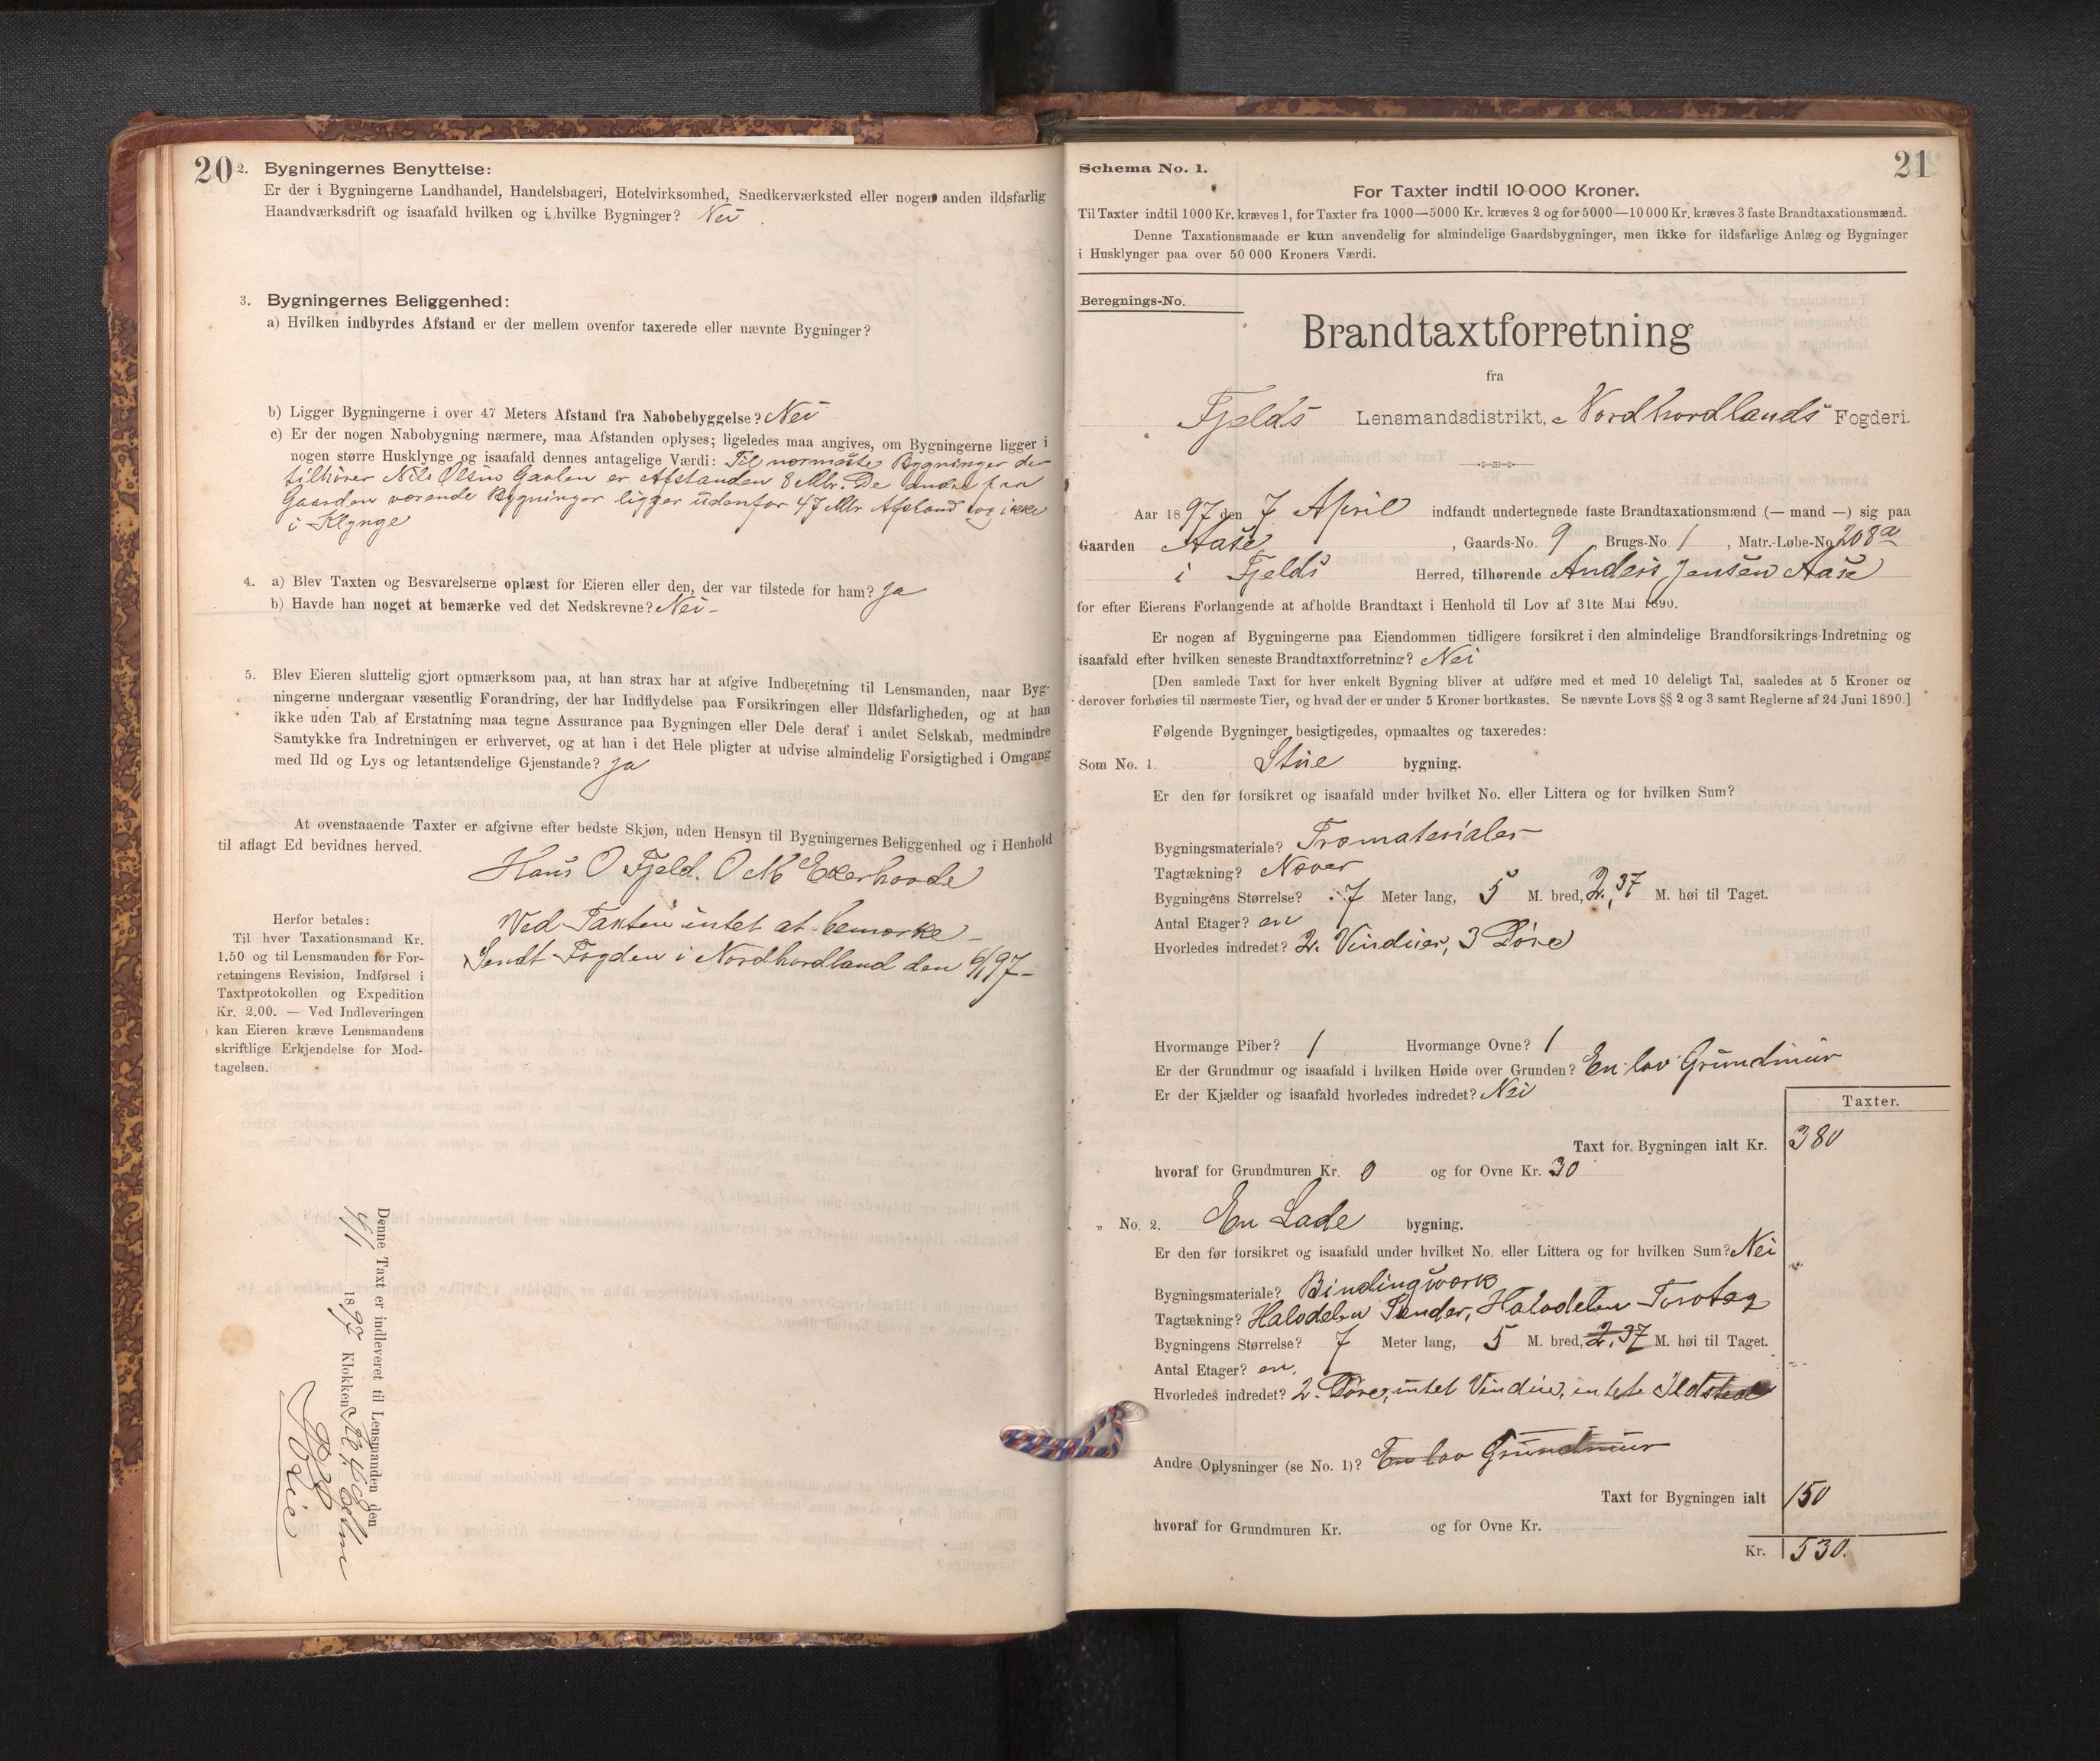 20
2. Bygningernes Benyttelse:
Er der i Bygningerne Landhandel, Handelsbageri, Hotelvirksomhed, Snedkerværksted eller nogen anden ildsfarlig
Haandværksdrift og isaafald hvilken og i hvilke Bygninger? Nei
3. Bygningernes Beliggenhed:
a) Hvilken indbyrdes Afstand er der mellem ovenfor taxerede eller nævnte Bygninger?
b) Ligger Bygningerne i over 47 Meters Afstand fra Nabobebyggelse? Nei
c) Er der nogen Nabobygning nærmere, maa Afstanden oplyses; ligeledes maa angives, om Bygningerne ligger i
nogen større Husklynge og isaafald dennes antagelige Værdi: Til nærmaste Bygninger der
tilhører Nils Olsen Gaalen er Afstanden 8 Mtr. De andre paa
Gaarden værende Bygninger ligger udenfor 47 Mtr Afstand og ikke
i Klynge
4. a) Blev Taxten og Besvarelserne oplæst for Eieren eller den, der var tilstede for ham? Ja
b) Havde han noget at bemærke ved det Nedskrevne? Nei -
5. Blev Eieren sluttelig gjort opmærksom paa, at han strax har at afgive Indberetning til Lensmanden, naar Byg-
ningerne undergaar væsentlig Forandring, der har Indflydelse paa Forsikringen eller Ildsfarligheden, og at han
ikke uden Tab af Erstatning maa tegne Assurance paa Bygningen eller Dele deraf i andet Selskab, medmindre
Samtykke fra Indretningen er erhvervet, og at han i det Hele pligter at udvise almindelig Forsigtighed i Omgang
med Ild og Lys og letantændelige Gjenstande? Ja
At ovenstaaende Taxter er afgivne efter bedste Skjøn, uden Hensyn til Bygningernes Beliggenhed og i Henhold
til aflagt Ed bevidnes herved.
Hans O Fjeld. O M Ekerhovde
Ved Taxten intet at bemærke -
Sendt Fogden i Nordhordland den
Herfor betales:
Til hver Taxationsmand Kr.
1.50 og til Lensmanden for For-
retningens Revision, Indførsel i
Taxtprotokollen og Expedition
Kr. 2.00. — Ved Indleveringen
kan Eieren kræve Lensmandens
skriftlige Erkjendelse for Mod-
tagelsen.
Denne Taxt er indleveret til Lensmanden den
1897 Klokken
21
Schema No. 1.
For Taxter indtil 10 000 Kroner.
Til Taxter indtil 1000 Kr. kræves 1, for Taxter fra 1000—5000 Kr. kræves 2 og for 5000—10 000 Kr. kræves 3 faste Brandtaxationsmænd.
Denne Taxationsmaade er kun anvendelig for almindelige Gaardsbygninger, men ikke for ildsfarlige Anlæg og Bygninger
i Husklynger paa over 50 000 Kroners Værdi.
Beregnings-No.
Brandtaxtforretning
fra
Fjelds Lensmandsdistrikt, Nordhordlands Fogderi.
Aar 1897 den 7 April indfandt undertegnede faste Brandtaxationsmænd (— mand —) sig paa
Gaarden Aase , Gaards-No. 9 Brugs-No. 1 , Matr.-Løbe-No. 208a
i Fjelds Herred, tilhørende Anders Jensen Aase
for efter Eierens Forlangende at afholde Brandtaxt i Henhold til Lov af 31te Mai 1890.
Er nogen af Bygningerne paa Eiendommen tidligere forsikret i den almindelige Brandforsikrings-Indretning og
isaafald efter hvilken seneste Brandtaxtforretning? Nei
[Den samlede Taxt for hver enkelt Bygning bliver at udføre med et med 10 deleligt Tal, saaledes at 5 Kroner og
derover forhøies til nærmeste Tier, og hvad der er under 5 Kroner bortkastes. Se nævnte Lovs §§ 2 og 3 samt Reglerne af 24 Juni 1890.]
Følgende Bygninger besigtigedes, opmaaltes og taxeredes:
Som No. 1. Stue bygning.
Er den før forsikret og isaafald under hvilket No. eller Littera og for hvilken Sum?
Bygningsmateriale? Træmaterialer
Tagtækning? Næver
Bygningens Størrelse? 7 Meter lang, 5 M. bred, 2,37 M. høi til Taget.
Antal Etager? en
Hvorledes indredet? 2. Vinduer, 3 Døre
Hvormange Piber? 1 Hvormange Ovne? 1
Er der Grundmur og isaafald i hvilken Høide over Grunden? En lav Grundmur
Er der Kjælder og isaafald hvorledes indredet? Nei
Taxter.
Taxt for Bygningen ialt Kr. 380
hvoraf for Grundmuren Kr. 0 og for Ovne Kr. 30
" No. 2. En Lade bygning.
Er den før forsikret og isaafald under hvilket No. eller Littera og for hvilken Sum? Nei
Bygningsmateriale? Bindingværk
Tagtækning? Halvdelen Pander, Halvdelen Torvtag
Bygningens Størrelse? 7 Meter lang, 5 M. bred, 2,37 M. høi til Taget.
Antal Etager? en.
Hvorledes indredet? 2. Døre, intet Vindue, intet Ildsted
Andre Oplysninger (se No. 1)? En lav Grundmur
Taxt for Bygningen ialt 150
hvoraf for Grundmuren Kr. og for Ovne Kr.
Kr. 530.